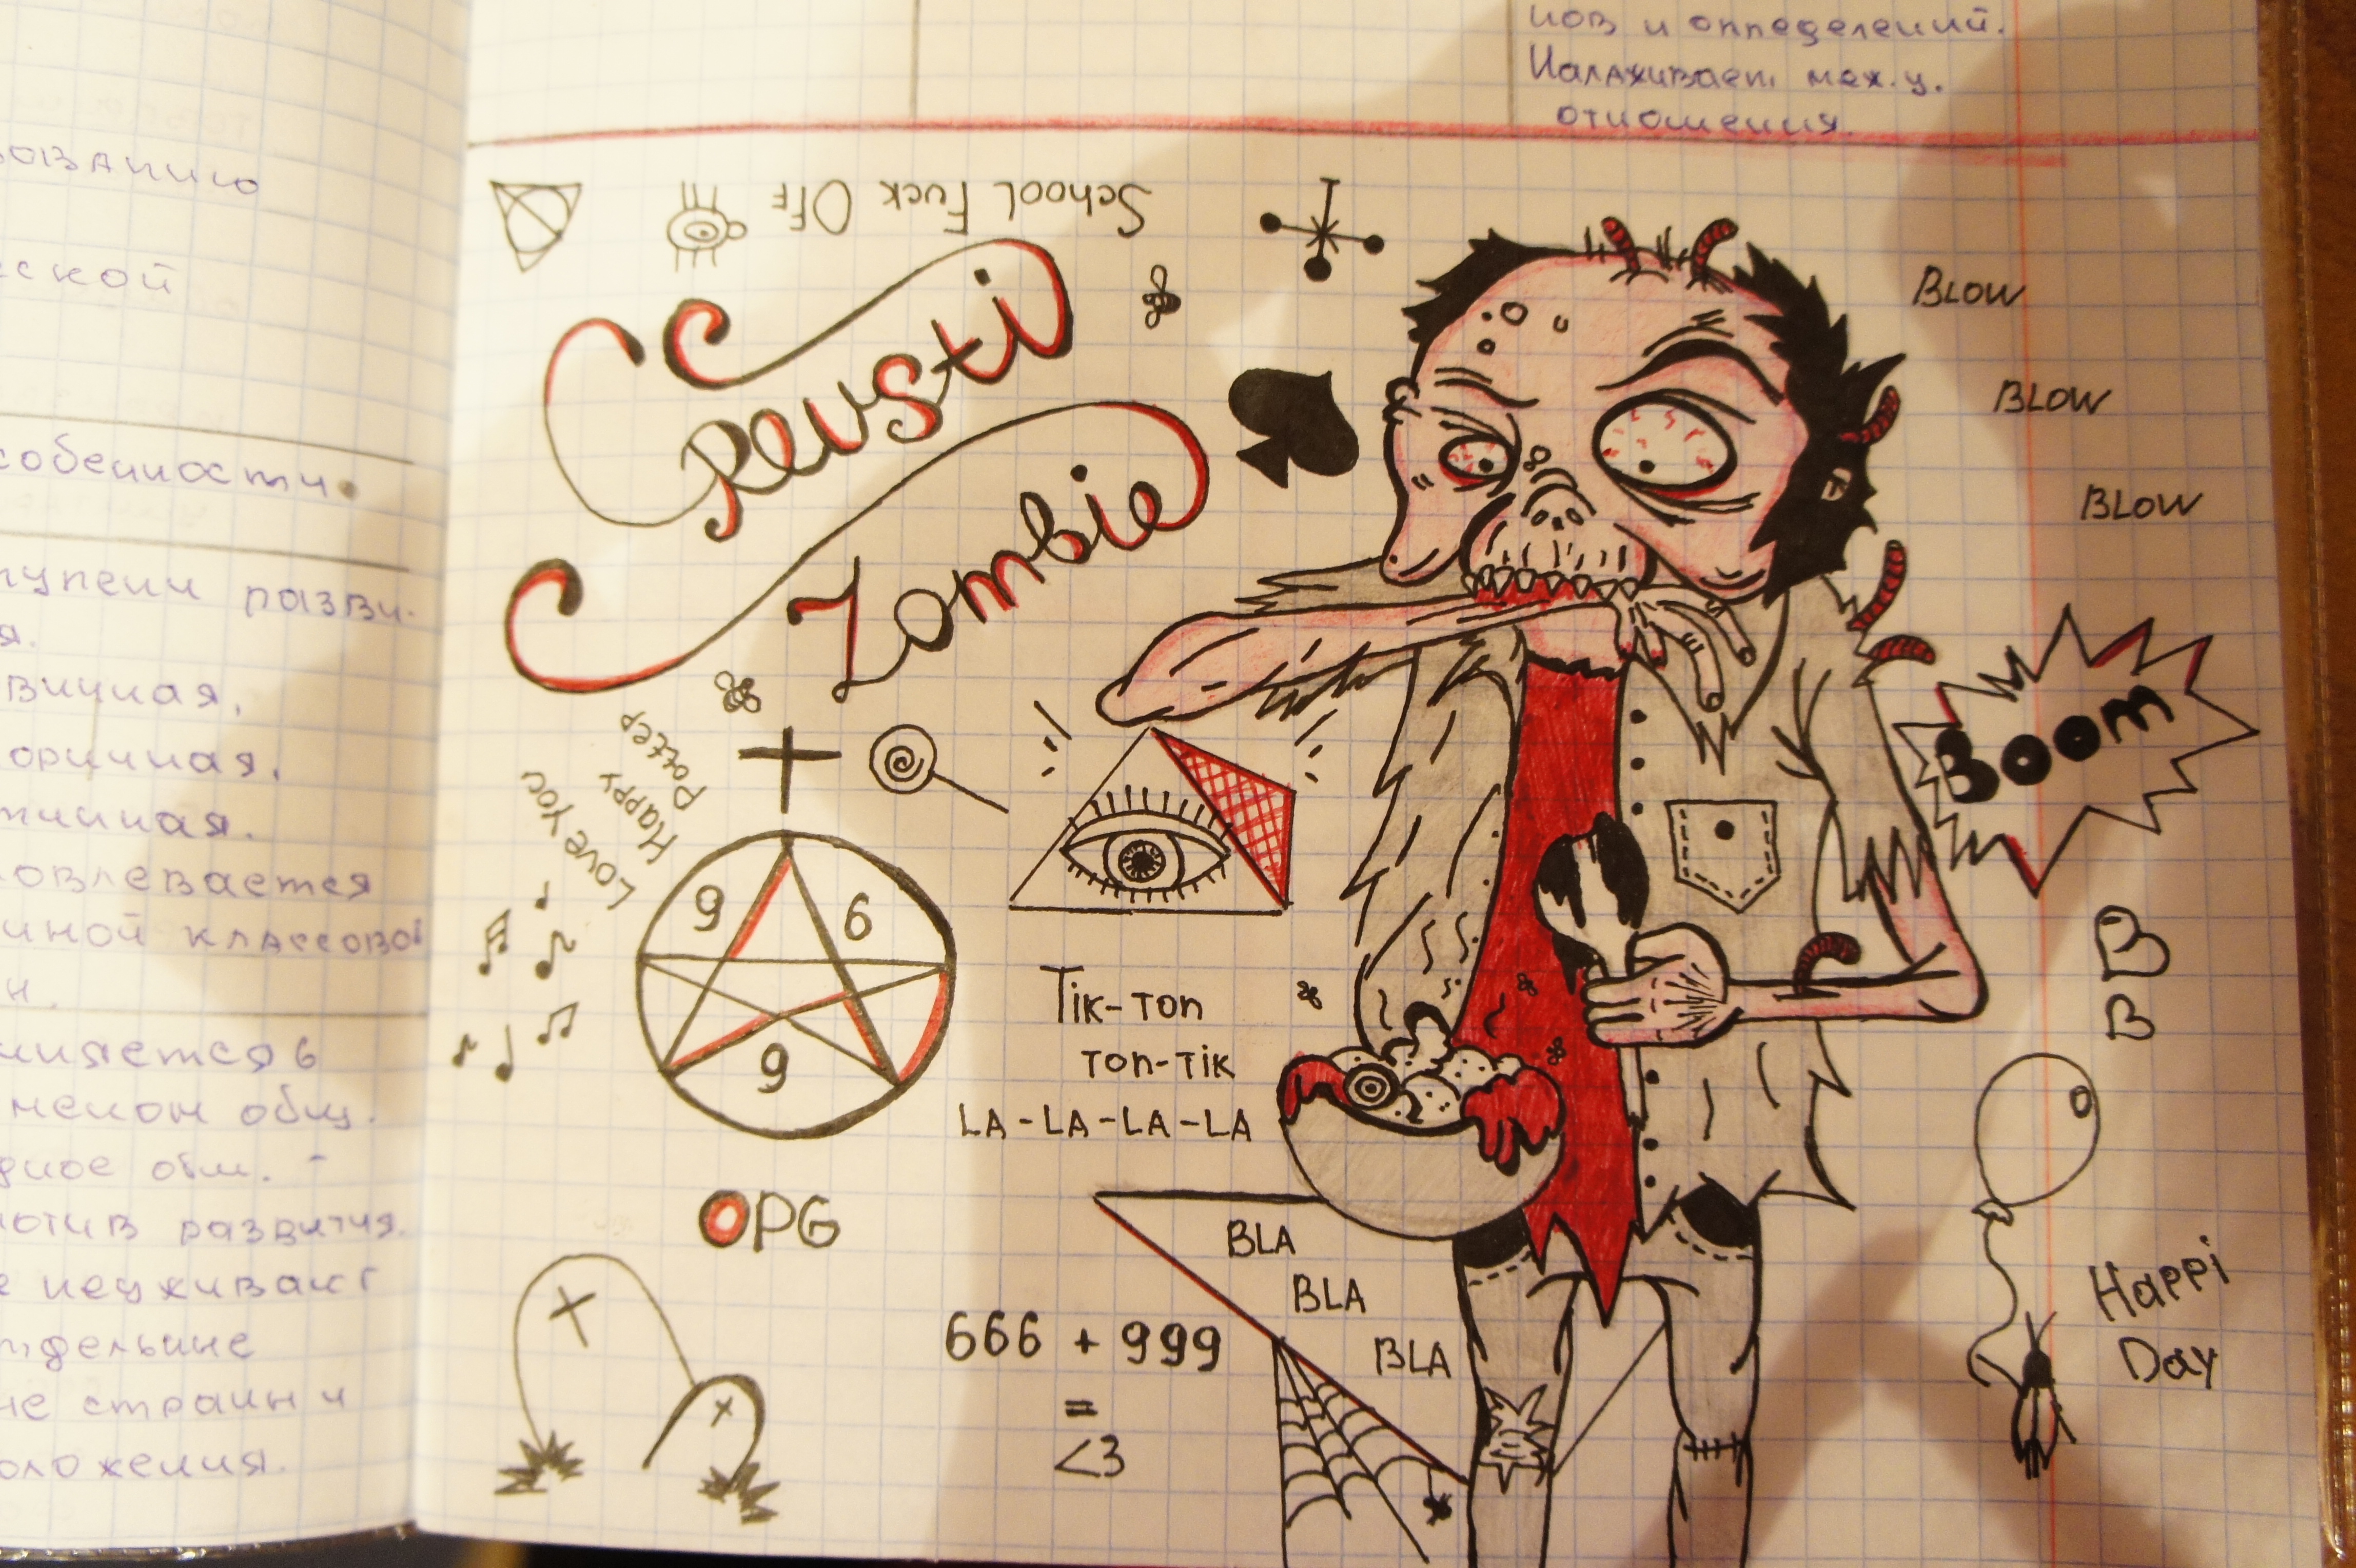 нов и определений.
Налаживает меж.у.
отношения.
ской
собенности
тупени разви-
я.
вичная,
оричная,
тичная.
овлевается
чной классовой
н.
няется в
мелом общ.
дное общ. -
отив развития.
е неуживают
тдельные
не страны и
оложения.
School Fuck Off
Crevsti
Zombie
BLOW
BLOW
BLOW
BOOM
Love You
Happy
Potter
9 6
9
Tik-Ton
Ton-Tik
LA-LA-LA-LA
B
B
OPG
BLA
BLA
BLA
666 + 999
=
<3
Happi
Day